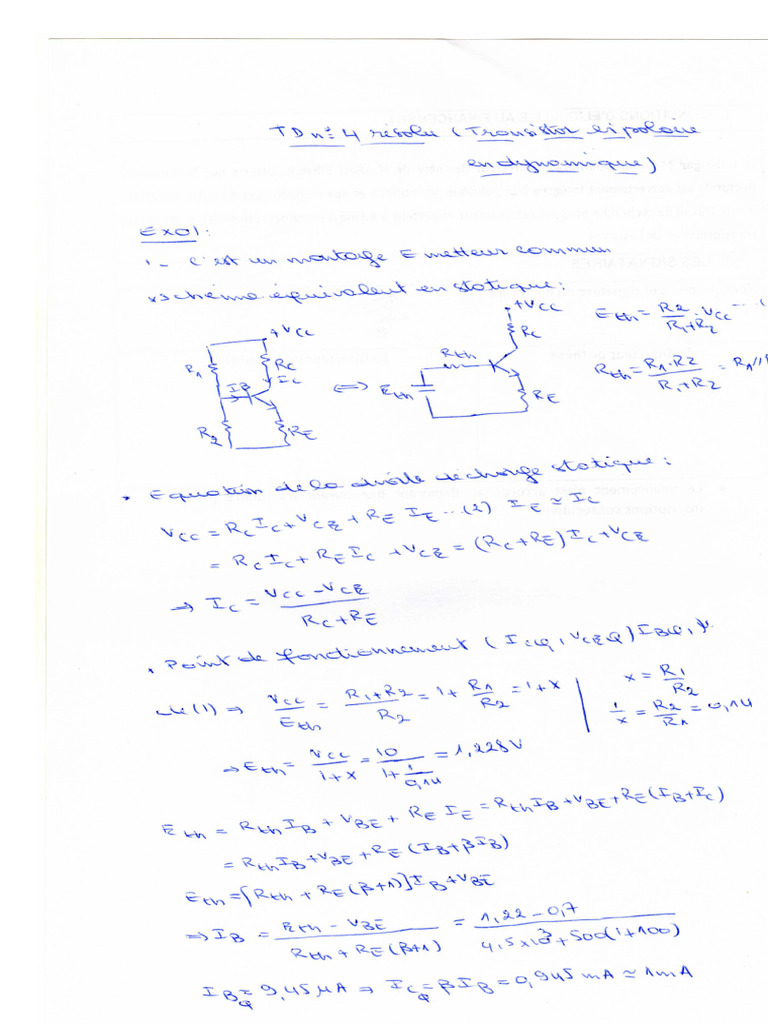 TD n°: 4 résolu (Transistor bipolaire
en dynamique)
Exo1:
1- C'est un montage Emetteur commun
* schéma équivalent en statique:
+VCC
+VCC
Eth = R2/(R1+R2) · VCC ---
R1
RC
IC
IB
R2
RE
<=>
Rth
RC
Eth
RE
Rth = R1·R2/(R1+R2) = R1//
• Equation de la droite de charge statique:
VCC = RC IC + VCE + RE IE ... (2) IE ≃ IC
= RC IC + RE IC + VCE = (RC+RE) IC + VCE
⇒ IC = (VCC - VCE)/(RC+RE)
• Point de fonctionnement (ICQ, VCEQ) IBQ,
de (1) ⇒ VCC/Eth = (R1+R2)/R2 = 1 + R1/R2 = 1 + x
x = R1/R2
1/x = R2/R1 = 0,14
⇒ Eth = VCC/(1+x) = 10/(1+1/0,14) = 1,228V
Eth = Rth IB + VBE + RE IE = Rth IB + VBE + RE (IB+IC)
= Rth IB + VBE + RE (IB+βIB)
Eth = [Rth + RE(β+1)] IB + VBE
⇒ IB = (Eth - VBE)/(Rth + RE(β+1)) = (1,22 - 0,7)/(4,5×10³ + 500(1+100))
IBQ = 9,45 µA ⇒ ICQ = βIB = 0,945 mA ≃ 1mA